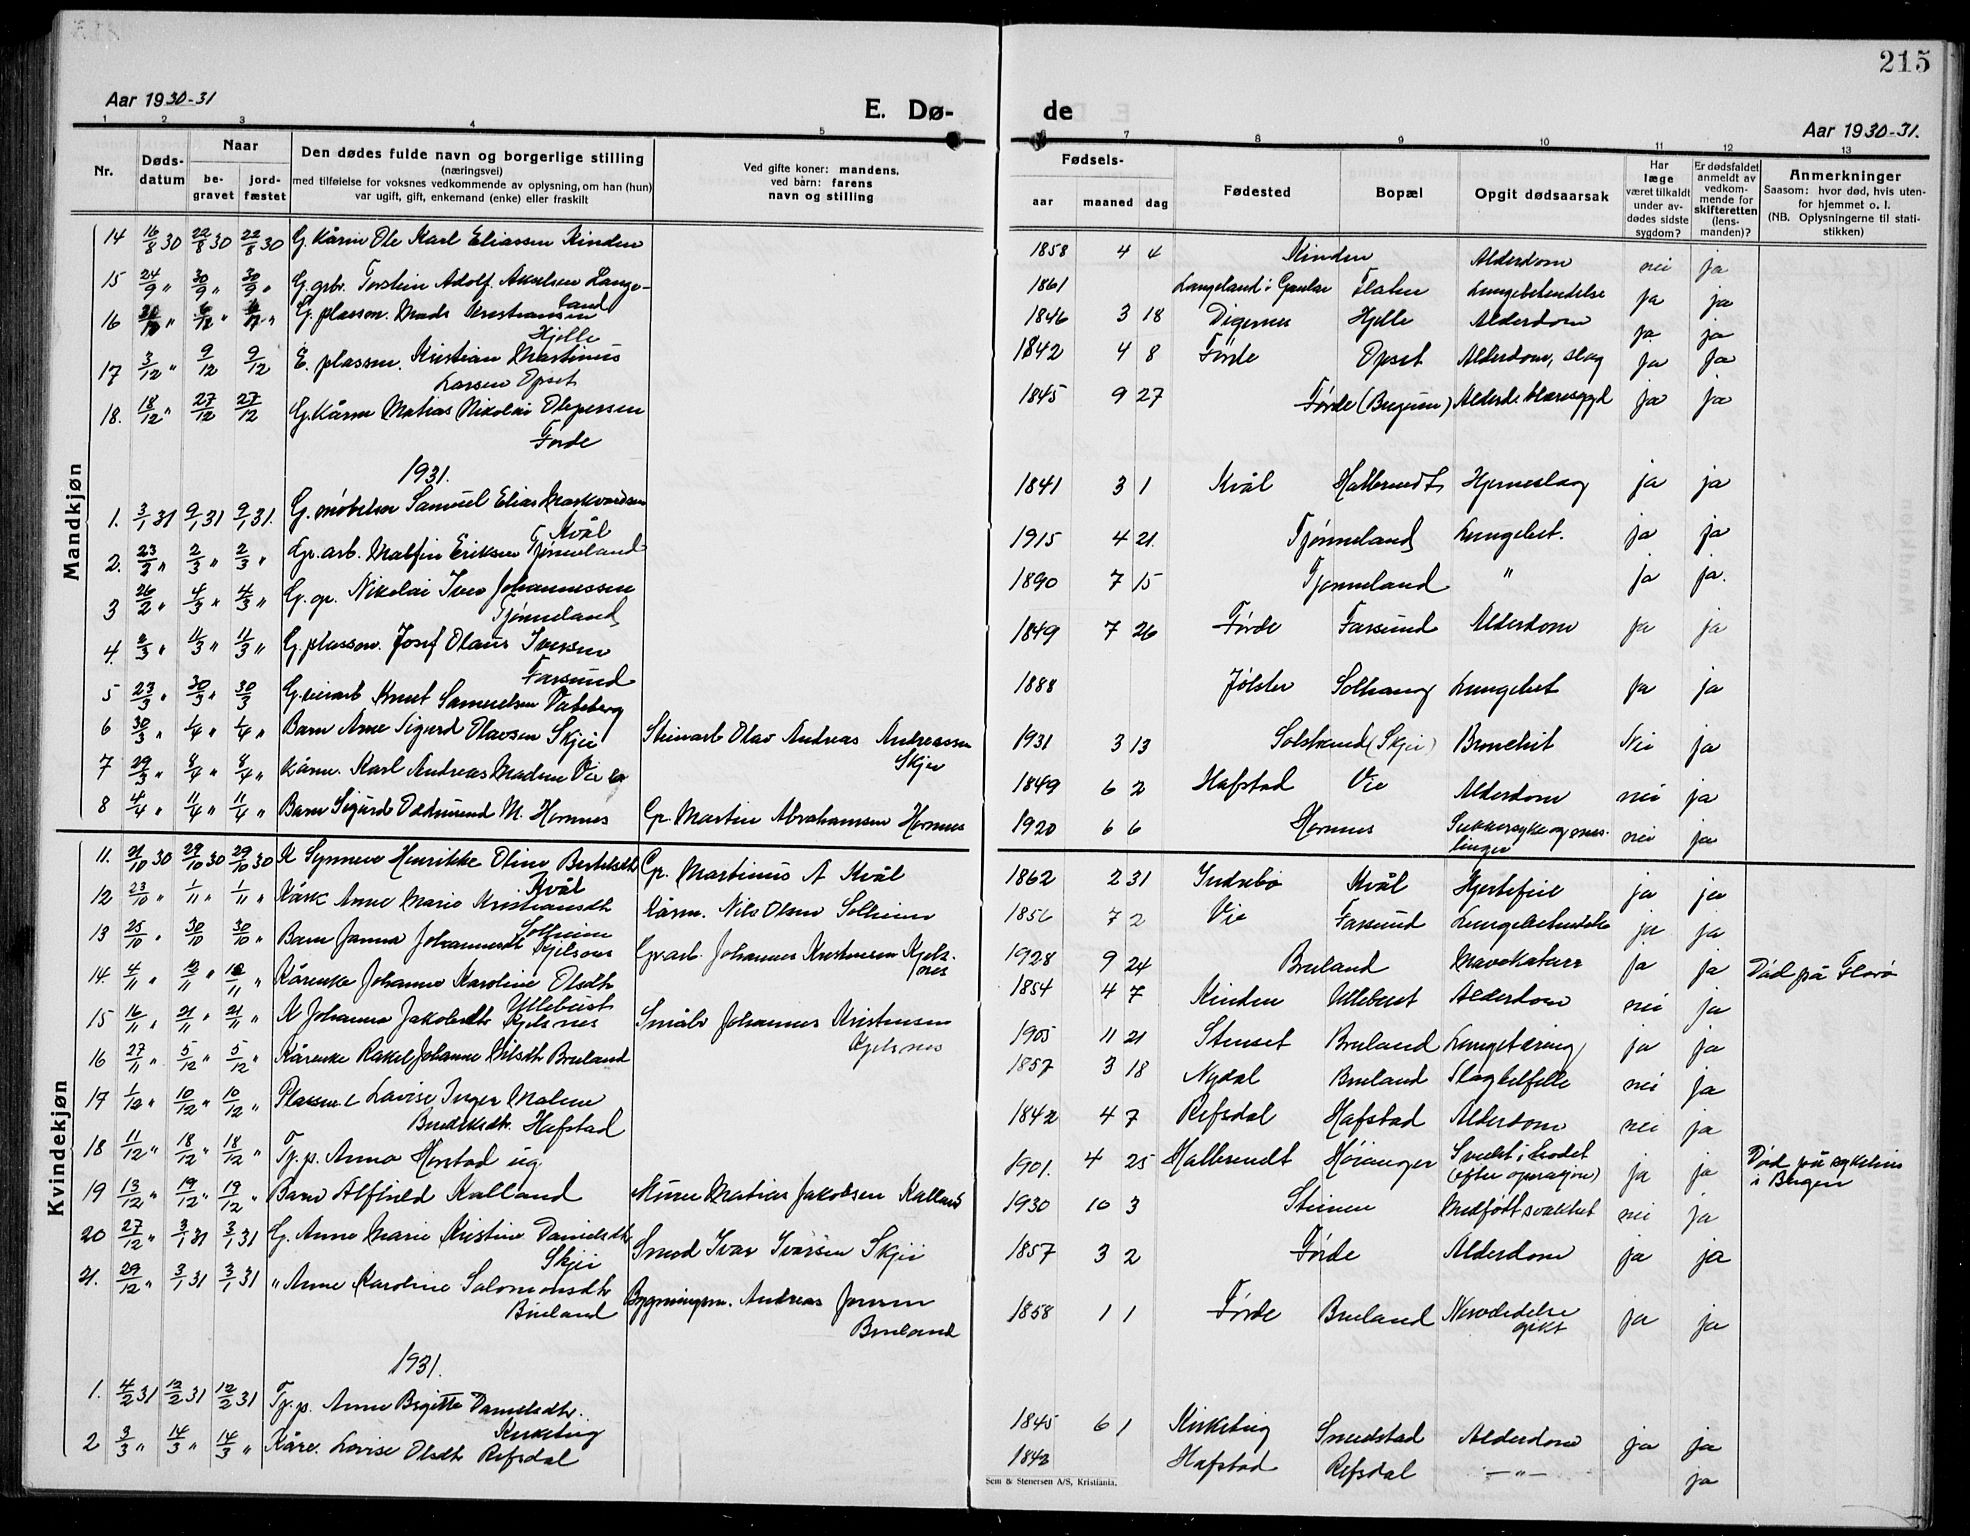 215
Aar 1930-31
E. Dø-
de
Aar 1930-31.
1 2 3 4 5 6 7 8 9 10 11 12 13
Nr.
Døds-
datum
Naar
be-
gravet
jord-
fæstet
Den dødes fulde navn og borgerlige stilling
(næringsvei)
med tilføielse for voksnes vedkommende av oplysning, om han (hun)
var ugift, gift, enkemand (enke) eller fraskilt
Ved gifte koner: mandens,
ved børn: farens
navn og stilling
Fødsels-
aar maaned dag
Fødested
Bopæl
Opgit dødsaarsak
Har
læge
været tilkaldt
under av-
dødes sidste
sygdom?
Er dødsfaldet
anmeldt av
vedkom-
mende for
skifteretten
(lens-
manden)?
Anmerkninger
Saasom: hvor død, hvis uten-
for hjemmet o. l.
(NB. Oplysningerne til stati-
stikken)
Mandkjøn
14 16/8 30 22/8 30 22/8 30 G. Kårm Ole Karl Eliassen Kinden 1858 4 4 Kinden Alderdom nei ja
15 24/9 " 30/9 " 30/9 " G. gbr. Torstein Adolf Akselsen Lange-
land 1861 Langeland i Gaular Flaten Lungebetendelse ja ja
16 " " " G. plassm. Mads Kristiansen
Hjelle 1846 3 18 Digernes Hjelle Alderdom ja ja
17 3/12 " 9/12 9/12 E. plassm. Kristian Martinus
Larsen Opset 1842 4 8 Førde Opset Alderdom, slag ja ja
18. 18/12 " 27/12 27/12 G. Kårm Matias Nikolai Olepersen
Førde 1845 9 27 Førde ja ja
1931.
1. 3/1 31 9/1 31 9/1 31. G. Samuel Elias Markvardsen
Kvål 1841 3 1 Kvål Halbrend Hjerneslag ja ja
2. 23/2 " 2/3 " 2/3 " Gr. arb. Malfin Eriksen Tjønneland 1915 4 21. Tjønneland Lungebet. ja ja
3 26/2 " 4/3 " 4/3 " G. gr. Nikolai Iver Johannessen
Tjønneland 1890 7 15 Tjønneland " ja ja.
4. 2/3 " 11/3 " 11/3 " G. plassm. Josef Olaus Iversen
Farsund 1849 7 26 Førde Farsund Alderdom ja ja
5 23/3 " 30/3 " 30/3 G. Knut Samuelsen 1888 Jølster Solhaug Lungebet ja ja
6 30/3 " 1/4 " 1/4 " Barn Arne Sigurd Olavsen Skjei Steinarb Olav Andreas Andreassen
Skjei 1931 3 13 Solstrand (Skjei) Bronchit Nei ja
7 29/3 " 8/4 " 8/4 " Kårm. Karl Andreas Madsen Vie 1849 6 2 Hafstad Vie Alderdom nei ja
8 4/4 " 11/4 " 11/4 " Barn Sigurd Oddmund M. Hornnes Gr. Martin Abrahamsen Hornnes 1920 6 6 Hornnes Sukkersyke og mes-
linger nei ja
Kvindekjøn
11. 21/10 30 29/10 30 29/10 30 K Synneve Henrikke Oline Bertelsdtr
Kvål Gr. Martinus A Kvål 1862 2 31 Indrebø Kvål Hjertefeil ja ja
12 23/10 " 1/11 " 1/11 " Kårk Anne Marie Kristiansdtr
Solheim Kårm. Nils Olsen Solheim 1856 7 2 Vie Farsund Lungebetendelse ja ja
13 25/10 " 30/10 30/10 " Barn Janna Johannesdtr
Kjelsnes Gr.arb. Johannes Kristensen Kjels-
nes 1928 9 24 Bruland Mavekatarr ja ja Død på Florø
14. 4/11 " 12/11 " 12/11 " Kårenke Johanne Karoline Olsdtr
Ulltebust 1854 4 7 Kinden Ulltebust Alderdom nei ja
15 16/11 " 21/11 " 21/11 " K Johanna Jakobsdtr Kjelsnes Småbr Johannes Kristensen
Kjelsnes 1905 11 21 Stenset Bruland Lungetæring ja ja
16 27/11 " 5/12 " 5/12 " Kårenke Rakel Johanne Nilsdtr Bruland 1857 3 18 Nydal Bruland Slagtilfelle nei ja
17 1/12 " 10/12 " 10/12 " Plassm.e Lovise Inger Malene
Hafstad 1842 4 7 Refsdal Hafstad Alderdom nei ja
18 11/12 " 18/12 " 18/12 " Tj. p. Anna Horstad ug. 1901. 4 25 Halbrendt Høianger Svækt i hodet
(efter operasjon) ja ja Død på sykehus
i Bergen
19 13/12 " 19/12 " 19/12 " Barn Alfhild Kalland Murer Matias Jakobsen Kalland 1930 10 3 Steinen Medfødt svakhet nei ja
20 27/12 " 3/1 31 3/1 31 G. Anne Marie Kristine Danielsdtr
Skjei Smed Ivar Ivarsen Skjei 1857 3 2 Førde Alderdom ja ja
21. 29/12 " 3/1 31 3/1 31 " Anne Karoline Salomonsdtr
Bruland Bygningsm. Andreas Jonsen
Bruland 1858 1 1 Førde Bruland Nervelidelse
gikt ja ja
1931.
1. 4/2 31 12/2 31 12/2 31 Tj. p. Anne Brgitte Danielsdtr.
Kirkebug 1845 6 1 Kirkebug Smedstad Alderdom ja ja
2 3/3 " 14/3 " 14/3 " Kåre. Lovise Olsdtr Refsdal 1842 Hafstad Refsdal —"— ja
Sem & Stenersen A/S, Kristiania.